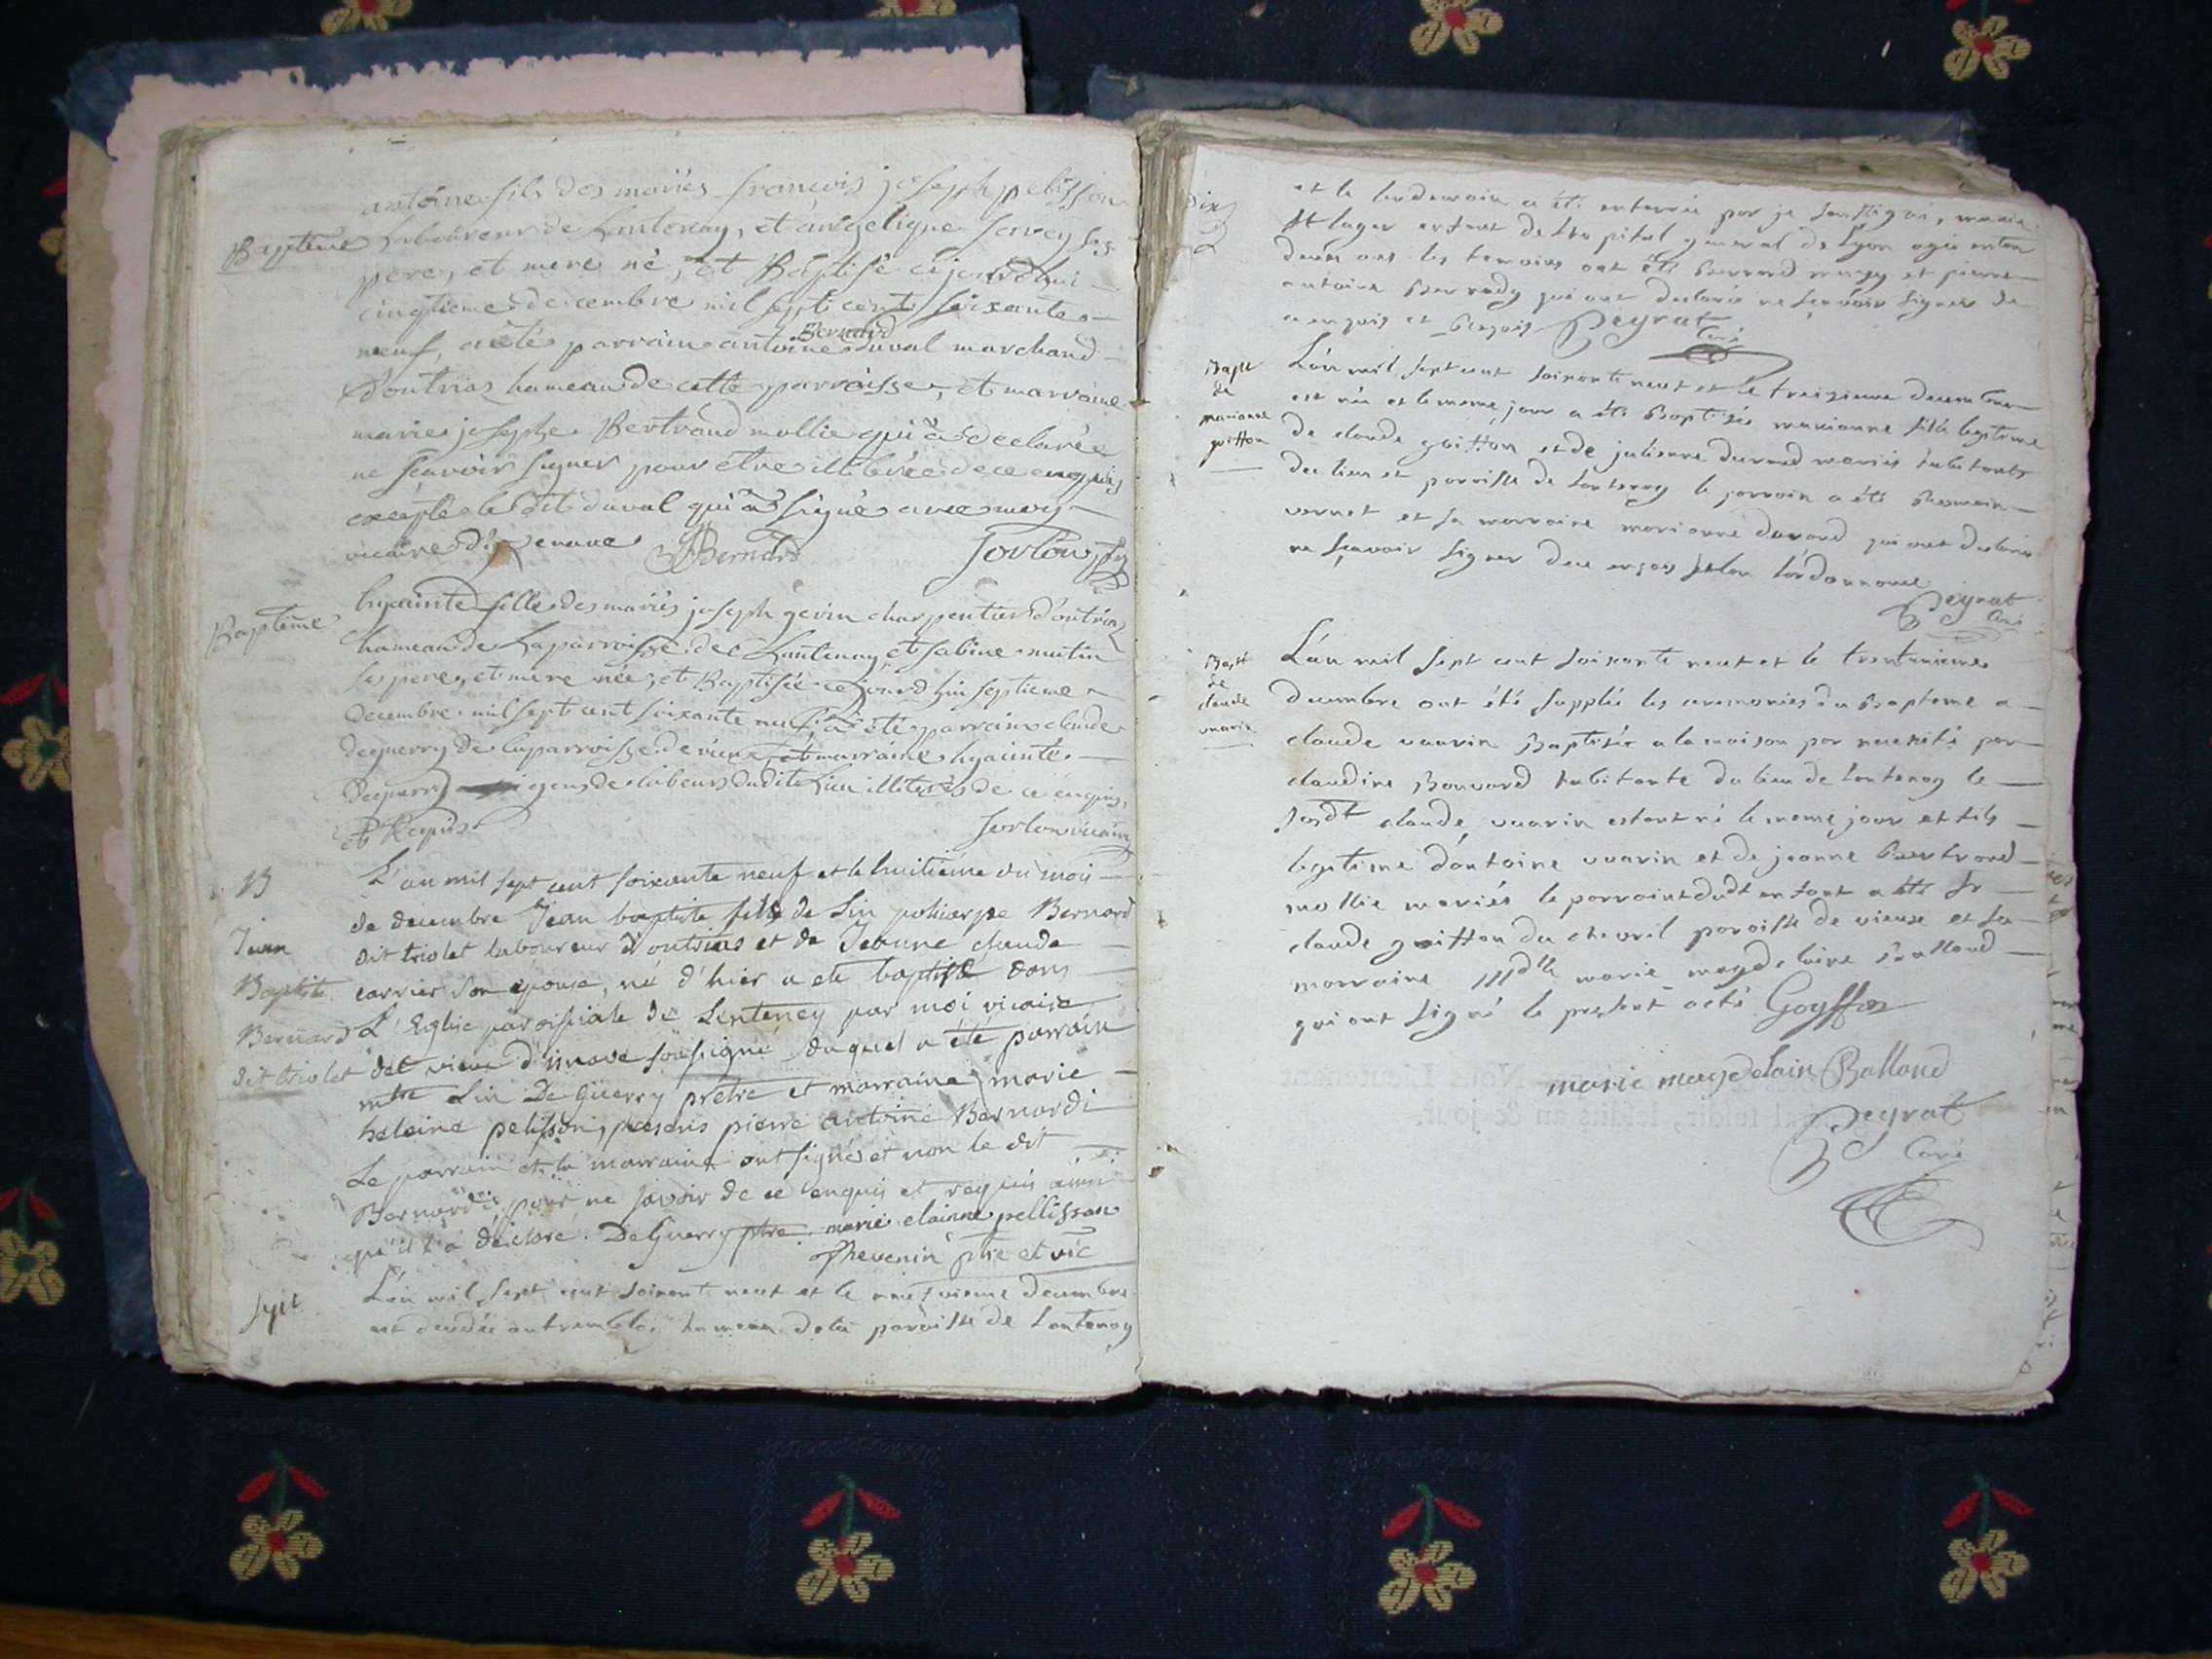 antoine fils des mariés françois joseph pelisson
Baptême Laboureur de Lantenay, et angelique savey ses
pere, et mere né, et Baptisé ce jourdhui
cinqtieme decembre mil sept cent soixante
neuf, a été parrain antoine Bernard duval marchand
d'outriaz hameau de cette parroisse, et marraine
marie josephe Bertrand mollie qui a declarée
ne sçavoir signer pour être illiterée de ce enquis
excepte le dit duval qui a signé avec moy
vicaire d' Bernard Sorlon
Baptême hyacinte fille des mariés joseph gevin charpentier d'outriaz
hameau de Laparroisse de Lantenay et sabine mutin
ses pere, et mere née, et Baptisée cejourdhui septieme
decembre mil sept cent soixante neuf, a été parrain claude
deguerry de laparroisse de vieux, et marraine hyacinte
Deguerry gens de labeur dudit Lieu illiterés de ce enquis,
et Requis Sorlon vicaire
B L'an mil sept cent soixante neuf et le huitieme du mois
de decembre Jean baptiste fils de Lin policarpe Bernard
Jean dit triolet laboureur d'outrias et de Jeanne claude
Baptiste carrier son epouse, né d'hier a eté baptisé dans
Bernard L'Eglise paroissiale de Lenteney par moi vicaire
dit triolet soussigné duquel a été parrain
mtre Lin De Guerry prêtre et marraine marie
helaine pelisson, presens pierre antoine Bernardi
Le parrain et la marraine ont signés et non le dit
Bernardi, pour ne savoir de ce enquis et requis ainsi
qu'il l'a déclaré. DeGuerry ptre marie elainne pellisson
Thevenin ptre et vic
L'an mil sept cent soixante neuf et le neufvieme decembre
est decedée hameau de la paroisse de Lantenay
et le lendemain a été enterrée par je soussigné, marie
St lager enfant de l'hopital general de Lyon agée
deux ans les temoins ont été Bernard et pierre
antoine Bernardy qui ont declarés ne sçavoir signer de
ce enquis et Requis Peyrat
Curé
Bapt
de
marianne
goiffon
L'an mil sept cent soixante neuf et le treizieme decembre
est née et le meme jour a été Baptisée marianne fille legitime
de claude goiffon et de julienne durand mariés habitants
du lieu et parroisse de Lantenay le parrain a été
vernet et la marraine marianne durand qui ont declarés
ne sçavoir signer de ce enquis selon l'ordonnance
Peyrat
Curé
Bapt
de
claude
vuarin
L'an mil sept cent soixante neuf et le trentunieme
decembre ont été supplés les ceremonies du Bapteme a
claude vuarin Baptisé a la maison par necessité par
claudine Bouvard habitante du lieu de Lantenay le
susdt claude vuarin estant né le meme jour et fils
legitime d'antoine vuarin et de jeanne Bertrand
mollie mariés le parrain dudt enfant a été Sr
claude goiffon du chevril paroisse de vieux et la
marraine Mdlle marie magdelaine Balland
qui ont signé le present acte Goyffon
marie magdelain Balland
Peyrat
Curé